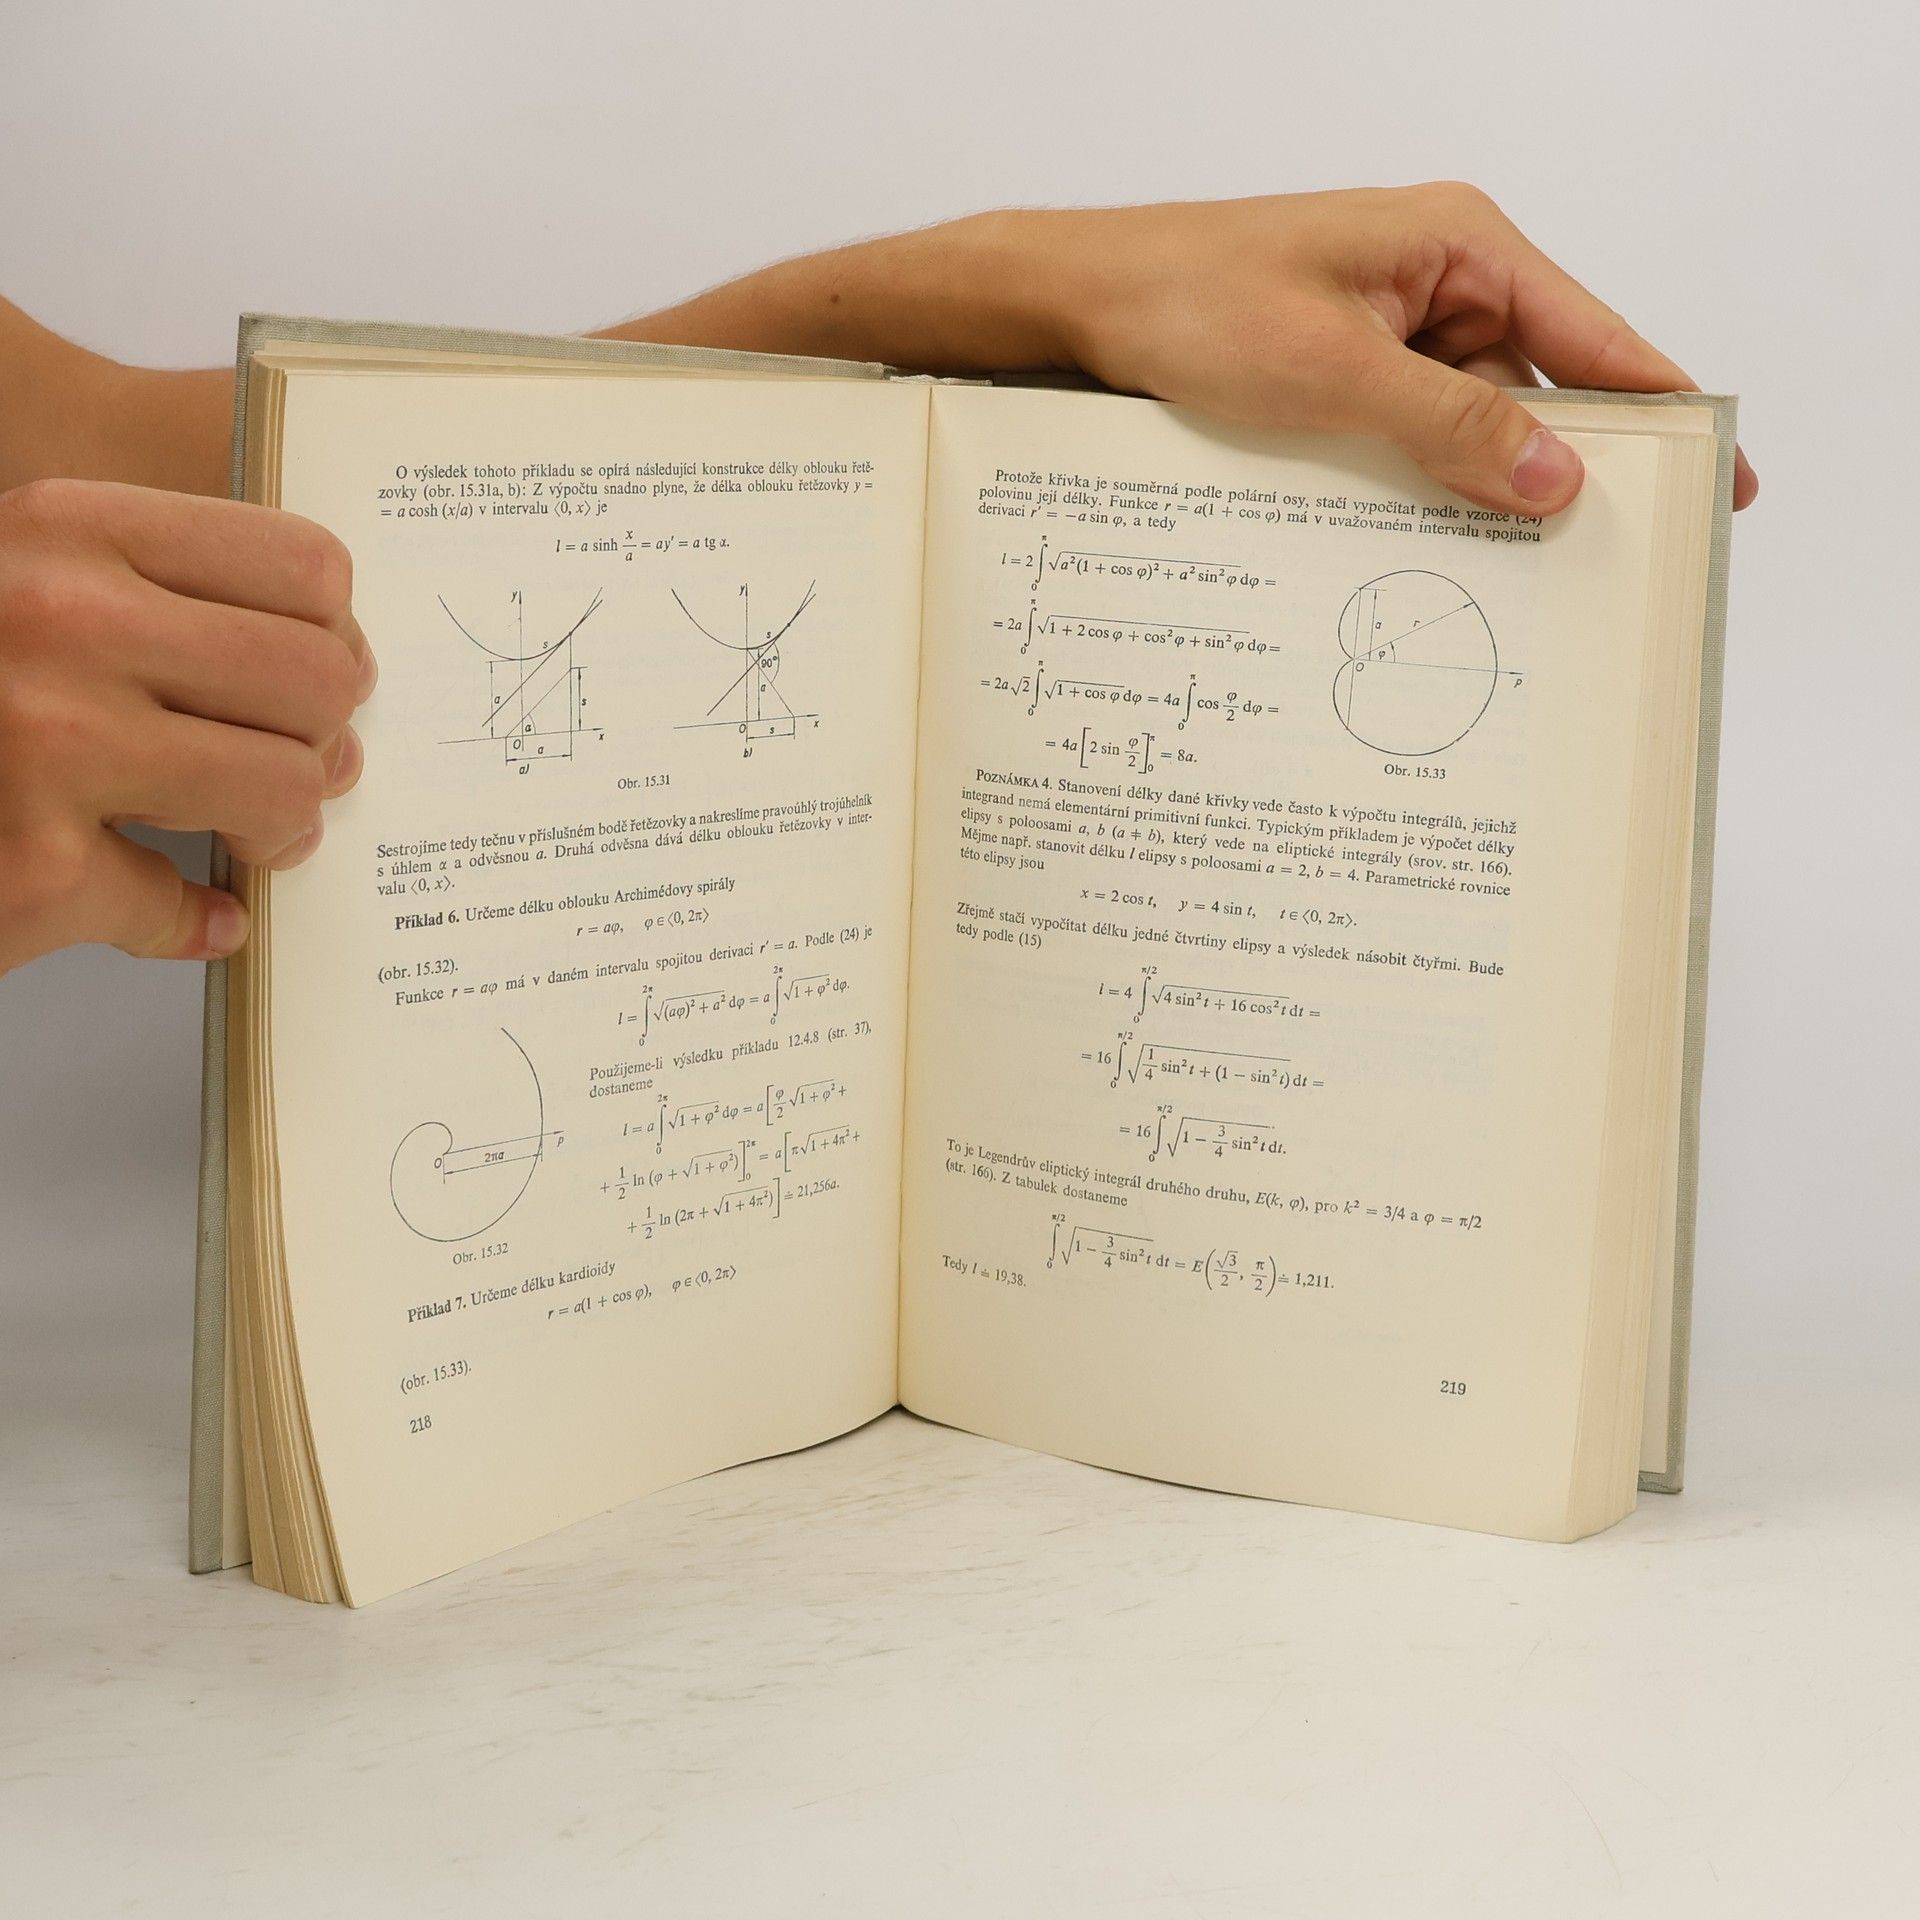 O výsledek tohoto příkladu se opírá následující konstrukce délky oblouku řetě-
zovky (obr. 15.31a, b): Z výpočtu snadno plyne, že délka oblouku řetězovky y =
= a cosh (x/a) v intervalu ⟨0, x⟩ je
l = a sinh x/a = ay′ = a tg α.
y s a s α O a x a)
y s 90° a O s x b)
Obr. 15.31
Sestrojíme tedy tečnu v příslušném bodě řetězovky a nakreslíme pravoúhlý trojúhelník
s úhlem α a odvěsnou a. Druhá odvěsna dává délku oblouku řetězovky v inter-
valu ⟨0, x⟩.
Příklad 6. Určeme délku oblouku Archimédovy spirály
r = aφ, φ ∈ ⟨0, 2π⟩
(obr. 15.32).
Funkce r = aφ má v daném intervalu spojitou derivaci r′ = a. Podle (24) je
l = ∫₀^2π √((aφ)² + a²) dφ = a ∫₀^2π √(1 + φ²) dφ.
Použijeme-li výsledku příkladu 12.4.8 (str. 37),
dostaneme
l = a ∫₀^2π √(1 + φ²) dφ = a [φ/2 √(1 + φ²) +
+ 1/2 ln (φ + √(1 + φ²))]₀^2π = a [π√(1 + 4π²) +
+ 1/2 ln (2π + √(1 + 4π²))] ≐ 21,256a.
O 2πa p
Obr. 15.32
Příklad 7. Určeme délku kardioidy
r = a(1 + cos φ), φ ∈ ⟨0, 2π⟩
(obr. 15.33).
218
Protože křivka je souměrná podle polární osy, stačí vypočítat podle vzorce (24)
polovinu její délky. Funkce r = a(1 + cos φ) má v uvažovaném intervalu spojitou
derivaci r′ = −a sin φ, a tedy
l = 2 ∫₀^π √(a²(1 + cos φ)² + a² sin² φ) dφ =
= 2a ∫₀^π √(1 + 2 cos φ + cos² φ + sin² φ) dφ =
= 2a √2 ∫₀^π √(1 + cos φ) dφ = 4a ∫₀^π cos φ/2 dφ =
= 4a [2 sin φ/2]₀^π = 8a.
a r φ O p
Obr. 15.33
POZNÁMKA 4. Stanovení délky dané křivky vede často k výpočtu integrálů, jejichž
integrand nemá elementární primitivní funkci. Typickým příkladem je výpočet délky
elipsy s poloosami a, b (a ≠ b), který vede na eliptické integrály (srov. str. 166).
Mějme např. stanovit délku l elipsy s poloosami a = 2, b = 4. Parametrické rovnice
této elipsy jsou
x = 2 cos t, y = 4 sin t, t ∈ ⟨0, 2π⟩.
Zřejmě stačí vypočítat délku jedné čtvrtiny elipsy a výsledek násobit čtyřmi. Bude
tedy podle (15)
l = 4 ∫₀^π/2 √(4 sin² t + 16 cos² t) dt =
= 16 ∫₀^π/2 √(1/4 sin² t + (1 − sin² t)) dt =
= 16 ∫₀^π/2 √(1 − 3/4 sin² t) dt.
To je Legendrův eliptický integrál druhého druhu, E(k, φ), pro k² = 3/4 a φ = π/2
(str. 166). Z tabulek dostaneme
∫₀^π/2 √(1 − 3/4 sin² t) dt = E(√3/2, π/2) ≐ 1,211.
Tedy l ≐ 19,38.
219